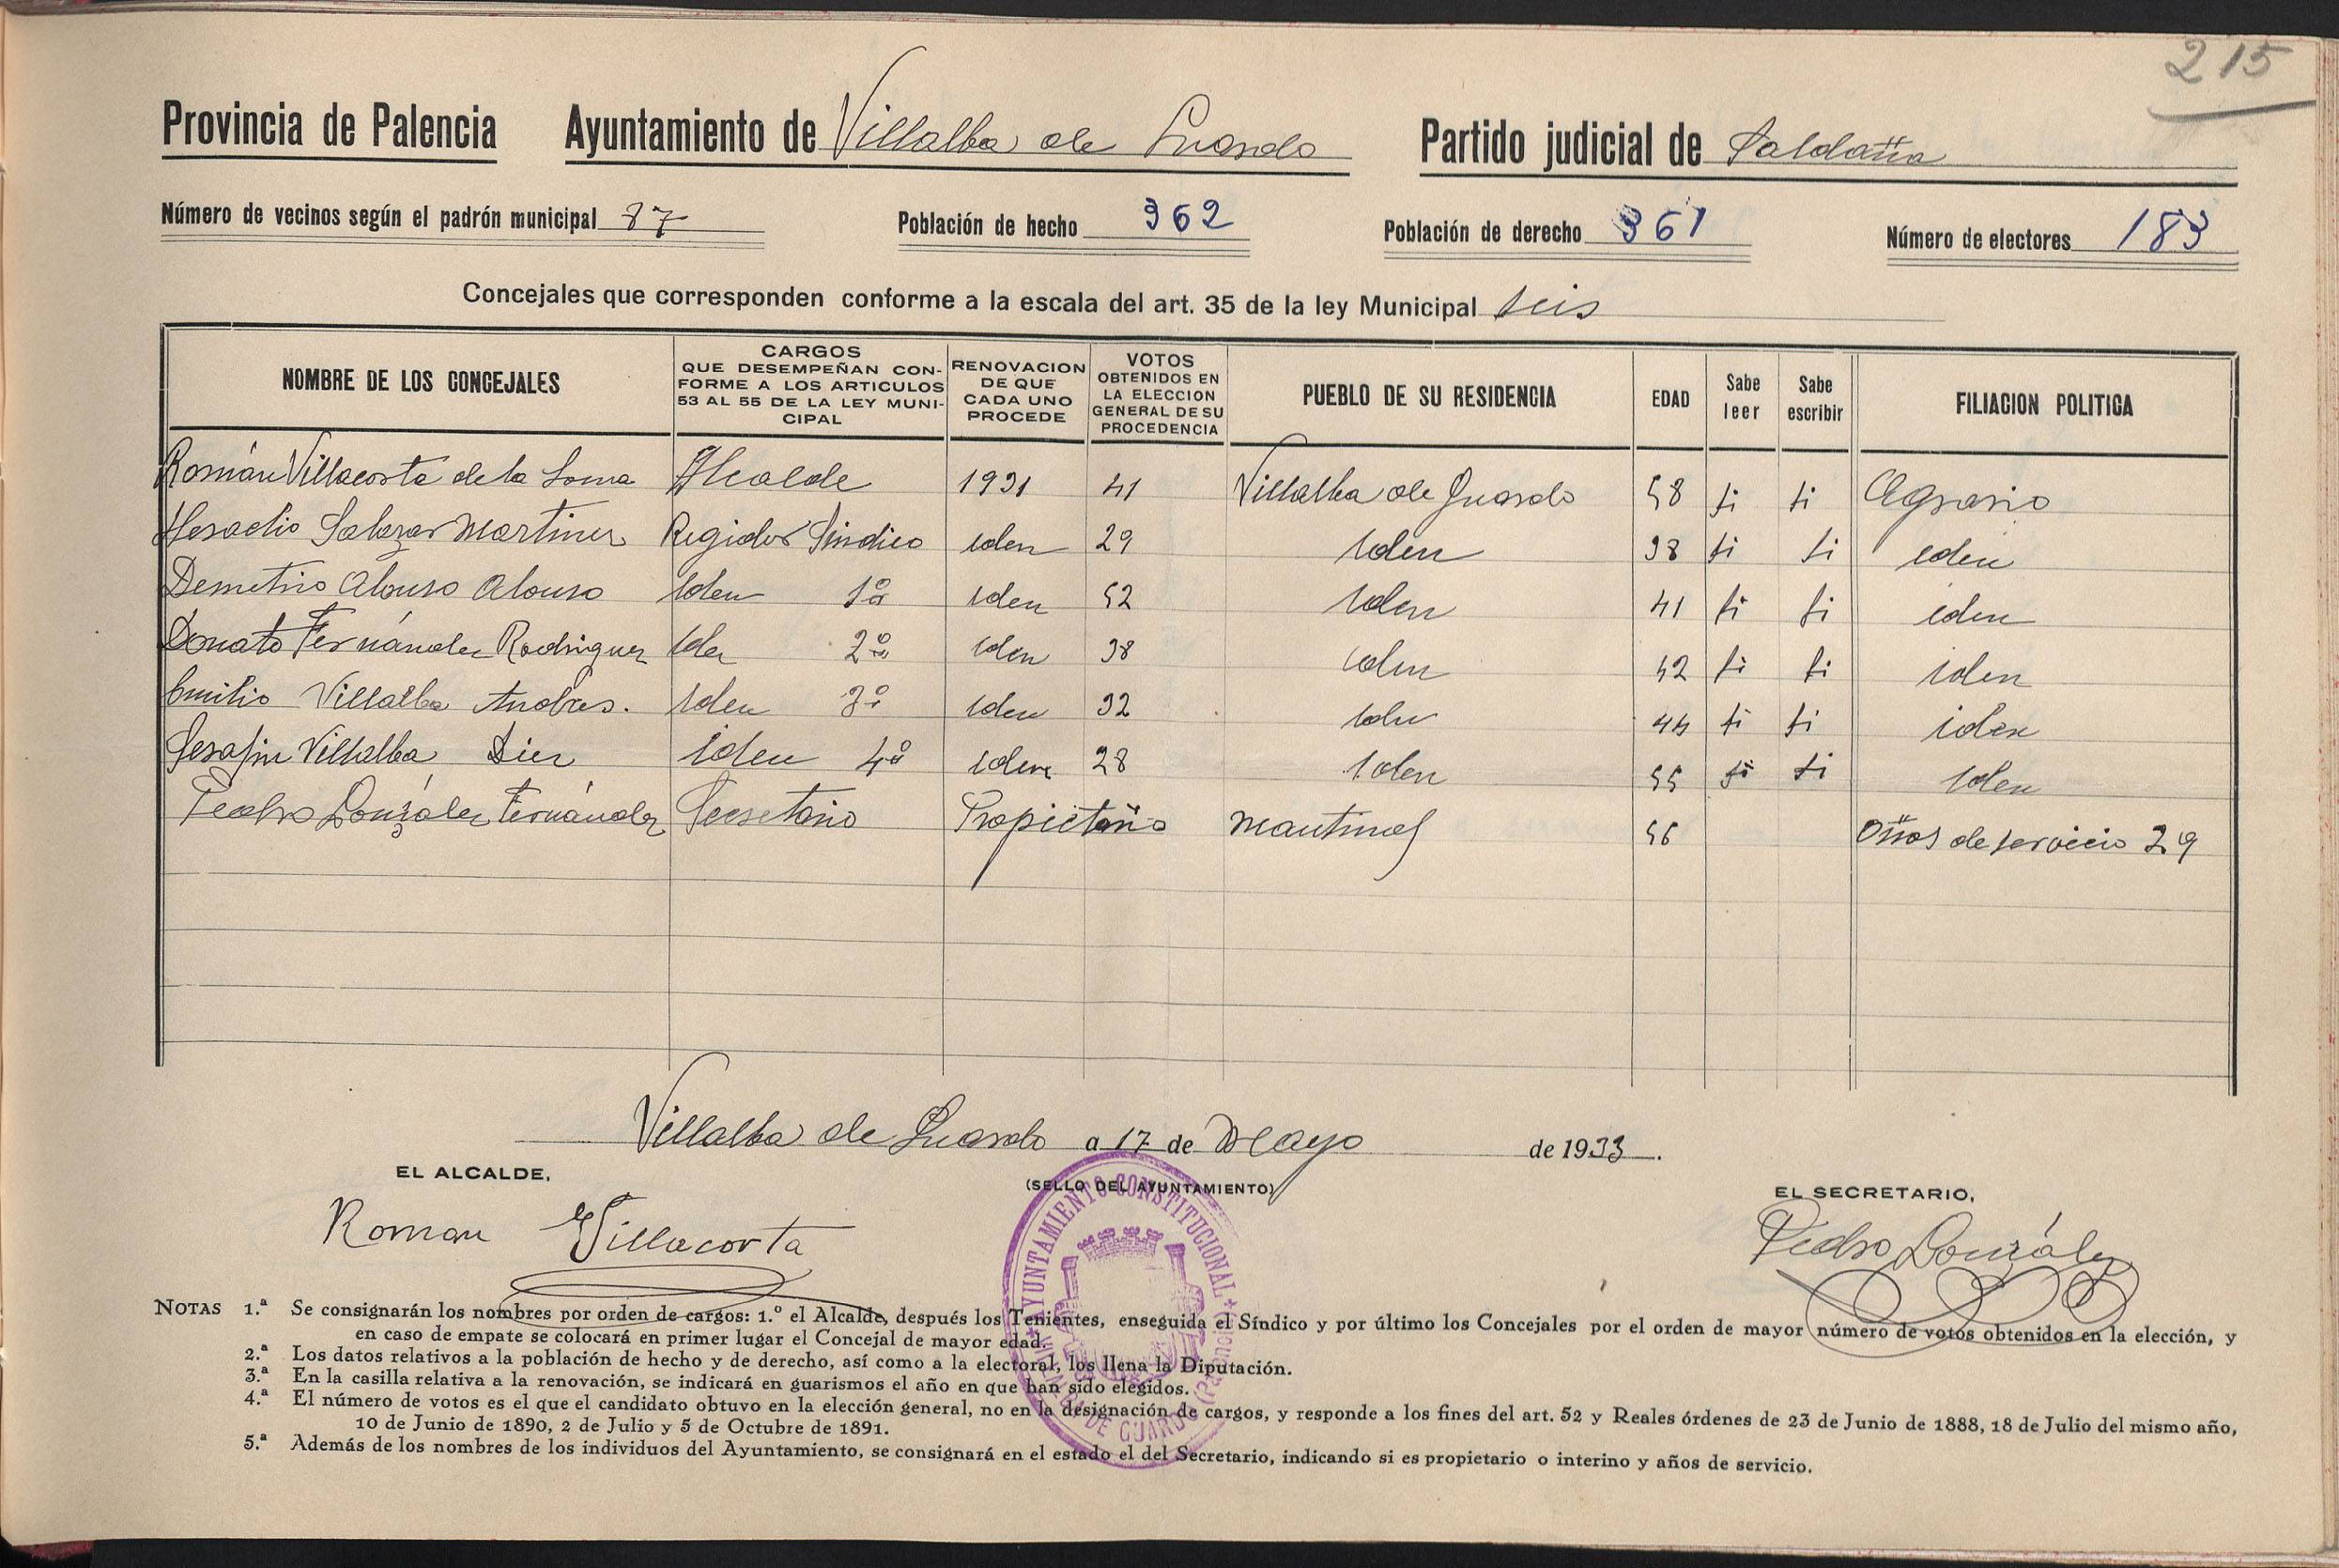 215
Provincia de Palencia Ayuntamiento de Villalba de Guardo Partido judicial de Saldaña
Número de vecinos según el padrón municipal 87 Población de hecho 362 Población de derecho 361 Número de electores 183
Concejales que corresponden conforme a la escala del art. 35 de la ley Municipal seis
NOMBRE DE LOS CONCEJALES CARGOS QUE DESEMPEÑAN CONFORME A LOS ARTICULOS 53 AL 55 DE LA LEY MUNICIPAL RENOVACION DE QUE CADA UNO PROCEDE VOTOS OBTENIDOS EN LA ELECCION GENERAL DE SU PROCEDENCIA PUEBLO DE SU RESIDENCIA EDAD Sabe leer Sabe escribir FILIACION POLITICA
Román Villacorta de la Loma Alcalde 1931 41 Villalba de Guardo 58 si si Agrario
Heraclio Salazar Martinez Regidor Sindico iden 29 iden 38 si si iden
Demetrio Alonso Alonso iden 1º iden 52 iden 41 si si iden
Donato Fernández Rodriguez iden 2º iden 38 iden 42 si si iden
Emilio Villalba Andres. iden 3º iden 32 iden 44 si si iden
Serafin Villalba Diez iden 4º iden 28 iden 55 si si iden
Pedro González Fernández Secretario Propietario Mantinos 56 Años de servicio 29
Villalba de Guardo a 17 de Mayo de 1933.
EL ALCALDE, (SELLO DEL AYUNTAMIENTO) EL SECRETARIO,
Roman Villacorta Pedro González
AYUNTAMIENTO CONSTITUCIONAL
DE GUARDO (Palencia)
NOTAS 1.ª Se consignarán los nombres por orden de cargos: 1.º el Alcalde, después los Tenientes, enseguida el Síndico y por último los Concejales por el orden de mayor número de votos obtenidos en la elección, y
en caso de empate se colocará en primer lugar el Concejal de mayor edad.
2.ª Los datos relativos a la población de hecho y de derecho, así como a la electoral, los llena la Diputación.
3.ª En la casilla relativa a la renovación, se indicará en guarismos el año en que han sido elegidos.
4.ª El número de votos es el que el candidato obtuvo en la elección general, no en la designación de cargos, y responde a los fines del art. 52 y Reales órdenes de 23 de Junio de 1888, 18 de Julio del mismo año,
10 de Junio de 1890, 2 de Julio y 5 de Octubre de 1891.
5.ª Además de los nombres de los individuos del Ayuntamiento, se consignará en el estado el del Secretario, indicando si es propietario o interino y años de servicio.